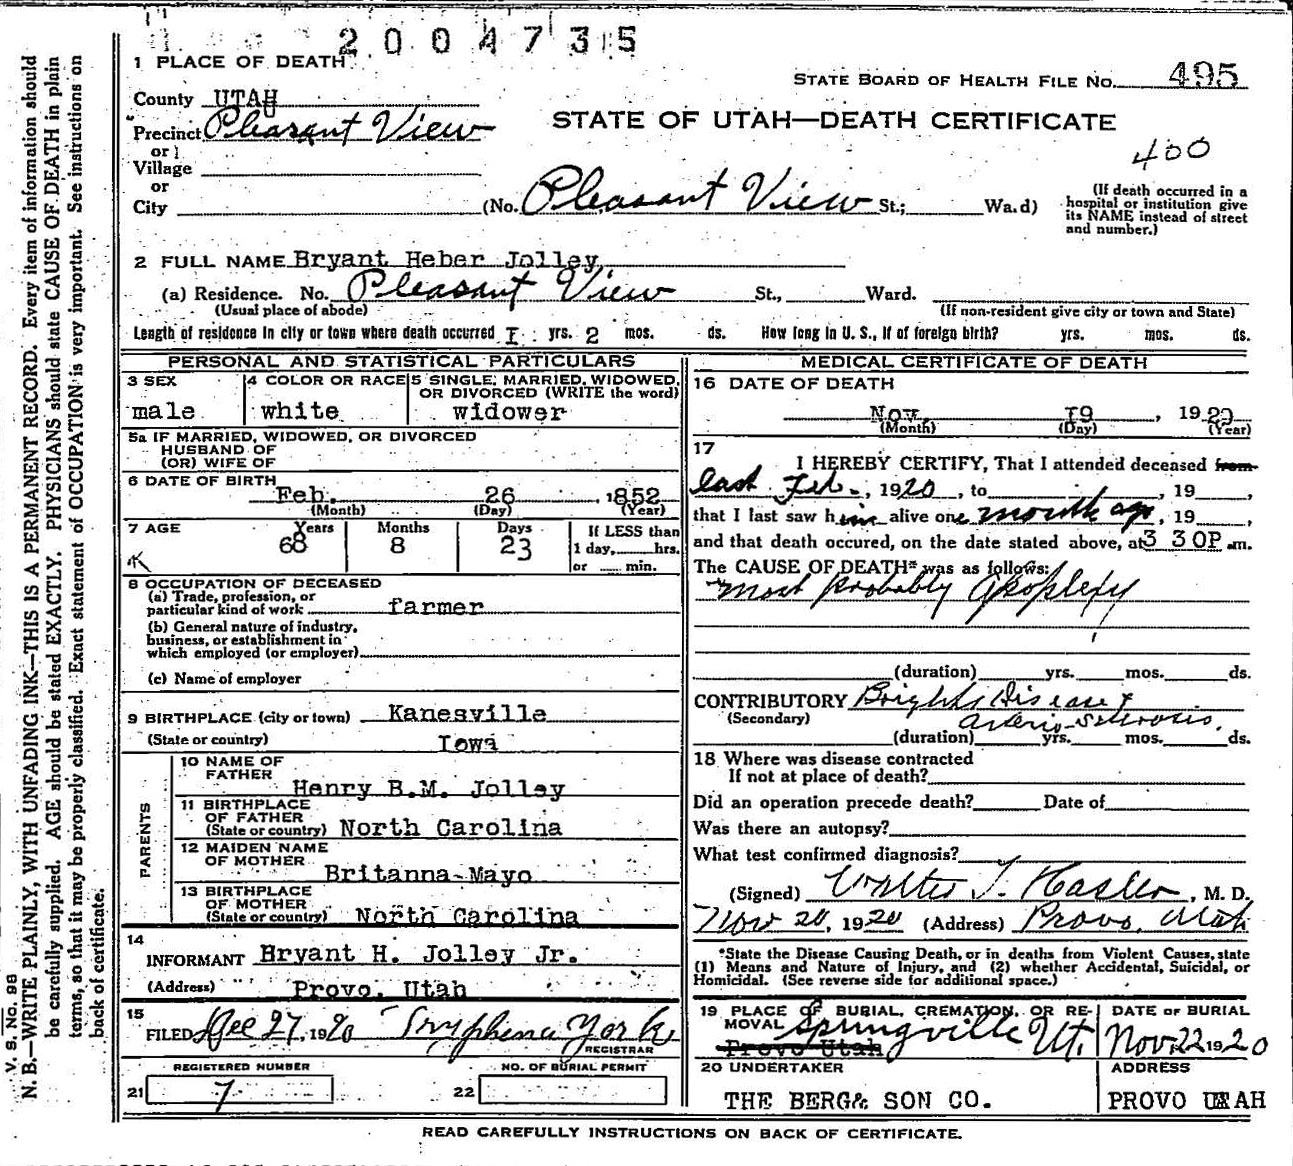 2004735
1 PLACE OF DEATH
STATE BOARD OF HEALTH FILE No. 495
County UTAH
STATE OF UTAH—DEATH CERTIFICATE
Precinct Pleasant View
or
400
Village
or
City (No. Pleasant View St.; Wa.d)
(If death occurred in a
hospital or institution give
its NAME instead of street
and number.)
2 FULL NAME Bryant Heber Jolley
(a) Residence. No. Pleasant View St., Ward.
(Usual place of abode) (If non-resident give city or town and State)
Length of residence in city or town where death occurred I yrs. 2 mos. ds. How long in U. S., if of foreign birth? yrs. mos. ds.
PERSONAL AND STATISTICAL PARTICULARS
3 SEX
male
4 COLOR OR RACE
white
5 SINGLE, MARRIED, WIDOWED,
OR DIVORCED (WRITE the word)
widower
5a IF MARRIED, WIDOWED, OR DIVORCED
HUSBAND OF
(OR) WIFE OF
6 DATE OF BIRTH
Feb. 26 , 1852
(Month) (Day) (Year)
7 AGE Years Months Days If LESS than
68 8 23 1 day, hrs.
or min.
8 OCCUPATION OF DECEASED
(a) Trade, profession, or
particular kind of work farmer
(b) General nature of industry,
business, or establishment in
which employed (or employer)
(c) Name of employer
9 BIRTHPLACE (city or town) Kanesville
(State or country) Iowa
PARENTS
10 NAME OF
FATHER
Henry B.M. Jolley
11 BIRTHPLACE
OF FATHER
(State or country) North Carolina
12 MAIDEN NAME
OF MOTHER
Britanna Mayo
13 BIRTHPLACE
OF MOTHER
(State or country) North Carolina
14
INFORMANT Bryant H. Jolley Jr.
(Address) Provo, Utah
15
FILED Dec 27, 1920 Tryphena York
REGISTRAR
REGISTERED NUMBER NO. OF BURIAL PERMIT
21 7 22
MEDICAL CERTIFICATE OF DEATH
16 DATE OF DEATH
Nov. I9 , 1920
(Month) (Day) (Year)
17
I HEREBY CERTIFY, That I attended deceased from
last Feb. , 1920 , to , 19 ,
that I last saw him alive one month ago , 19 ,
and that death occured, on the date stated above, at 3 30P .m.
The CAUSE OF DEATH* was as follows:
most probably apoplexy
(duration) yrs. mos. ds.
CONTRIBUTORY Brights Disease &
(Secondary) arterio-sclerosis.
(duration) yrs. mos. ds.
18 Where was disease contracted
If not at place of death?
Did an operation precede death? Date of
Was there an autopsy?
What test confirmed diagnosis?
(Signed) Walter T. Hasler, M. D.
Nov 20, 1920 (Address) Provo, Utah
*State the Disease Causing Death, or in deaths from Violent Causes, state
(1) Means and Nature of Injury, and (2) whether Accidental, Suicidal, or
Homicidal. (See reverse side for additional space.)
19 PLACE OF BURIAL, CREMATION, OR RE-
MOVAL Springville Ut.
Provo Utah
DATE OF BURIAL
Nov. 22 1920
20 UNDERTAKER
THE BERG& SON CO.
ADDRESS
PROVO UTAH
READ CAREFULLY INSTRUCTIONS ON BACK OF CERTIFICATE.
V. S. No. 98
N. B.—WRITE PLAINLY, WITH UNFADING INK—THIS IS A PERMANENT RECORD. Every item of information should
be carefully supplied. AGE should be stated EXACTLY. PHYSICIANS should state CAUSE OF DEATH in plain
terms, so that it may be properly classified. Exact statement of OCCUPATION is very important. See instructions on
back of certificate.